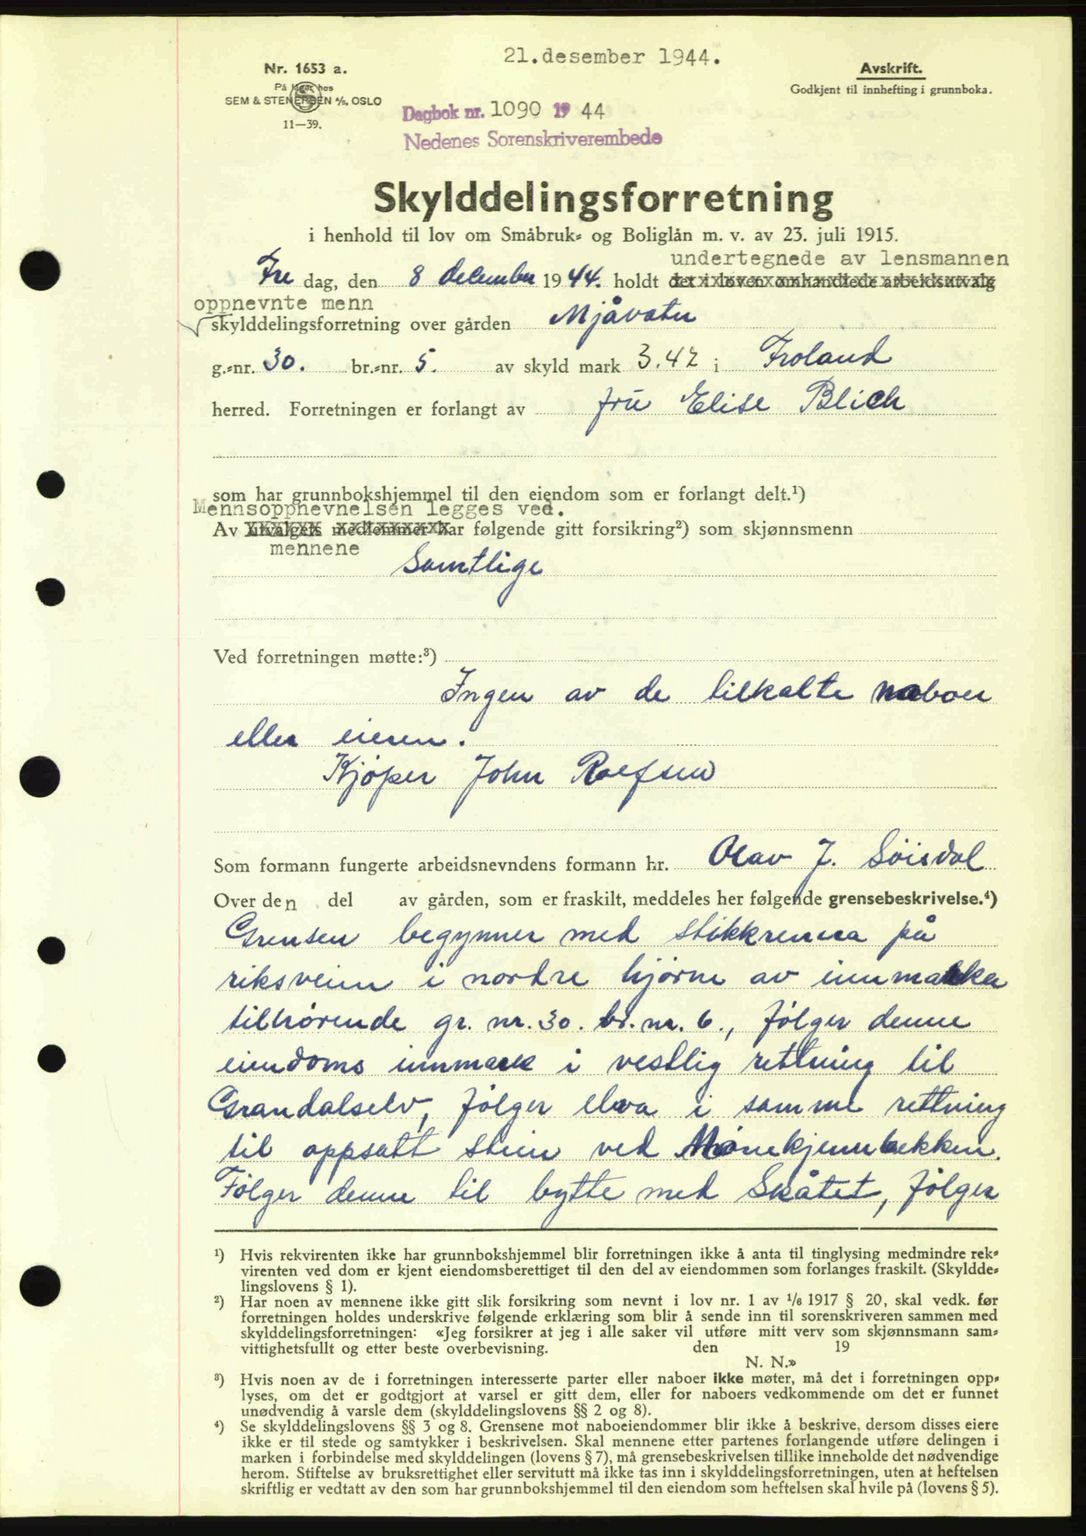 21.desember 1944.
Nr. 1653 a.
På lager hos
SEM & STENERSEN A/S, OSLO
11—39.
Avskrift.
Godkjent til innhefting i grunnboka.
Dagbok nr. 1090 19 44
Nedenes Sorenskriverembede
Skylddelingsforretning
i henhold til lov om Småbruk- og Boliglån m. v. av 23. juli 1915.
undertegnede av lensmannen
Fre dag, den 8 december 1944. holdt det i loven omhandlede arbeidsutvalg
oppnevnte menn
skylddelingsforretning over gården Mjåvatn
g.-nr. 30. br.-nr. 5. av skyld mark 3.42 i Froland
herred. Forretningen er forlangt av fru Elise Blich
som har grunnbokshjemmel til den eiendom som er forlangt delt.¹)
Mennsoppnevnelsen legges ved.
Av utvalgets medlemmer har følgende gitt forsikring²) som skjønnsmenn
mennene
Samtlige
Ved forretningen møtte:³)
Ingen av de tilkalte naboer
eller eieren.
Kjøper John Roefsen
Som formann fungerte arbeidsnevndens formann hr. Olav J. Søisdal
Over den del av gården, som er fraskilt, meddeles her følgende grensebeskrivelse.⁴)
Grensen begynner med stikkrenna på
riksveien i nordre hjørne av innmarka
tilhørende gr. nr. 30. br. nr. 6., følger denne
eiendoms innmark i vestlig rettning til
Grandalselv, følger elva i samme rettning
til oppsatt stein ved Månekjennbekken.
Følger denne til bytte med Skåtet, følger
¹) Hvis rekvirenten ikke har grunnbokshjemmel blir forretningen ikke å anta til tinglysing medmindre rek-
virenten ved dom er kjent eiendomsberettiget til den del av eiendommen som forlanges fraskilt. (Skyldde-
lingslovens § 1).
²) Har noen av mennene ikke gitt slik forsikring som nevnt i lov nr. 1 av 1/6 1917 § 20, skal vedk. før
forretningen holdes underskrive følgende erklæring som blir å sende inn til sorenskriveren sammen med
skylddelingsforretningen: «Jeg forsikrer at jeg i alle saker vil utføre mitt verv som skjønnsmann sam-
vittighetsfullt og etter beste overbevisning. den 19
N. N.»
³) Hvis noen av de i forretningen interesserte parter eller naboer ikke møter, må det i forretningen opp-
lyses, om det er godtgjort at varsel er gitt dem, eller for naboers vedkommende om det er funnet
unødvendig å varsle dem (skylddelingslovens §§ 2 og 8).
⁴) Se skylddelingslovens §§ 3 og 8. Grensene mot naboeiendommer blir ikke å beskrive, dersom disses eiere
ikke er til stede og samtykker i beskrivelsen. Skal mennene etter partenes forlangende utføre delingen i
marken i forbindelse med skylddelingen (lovens § 7), må grensebeskrivelsen tillike inneholde det nødvendige
herom. Stiftelse av bruksrettighet eller servitutt må ikke tas inn i skylddelingsforretningen, uten at heftelsen
skriftlig er vedtatt av den som har grunnbokshjemmel til den eiendom som heftelsen skal hvile på (lovens § 5).